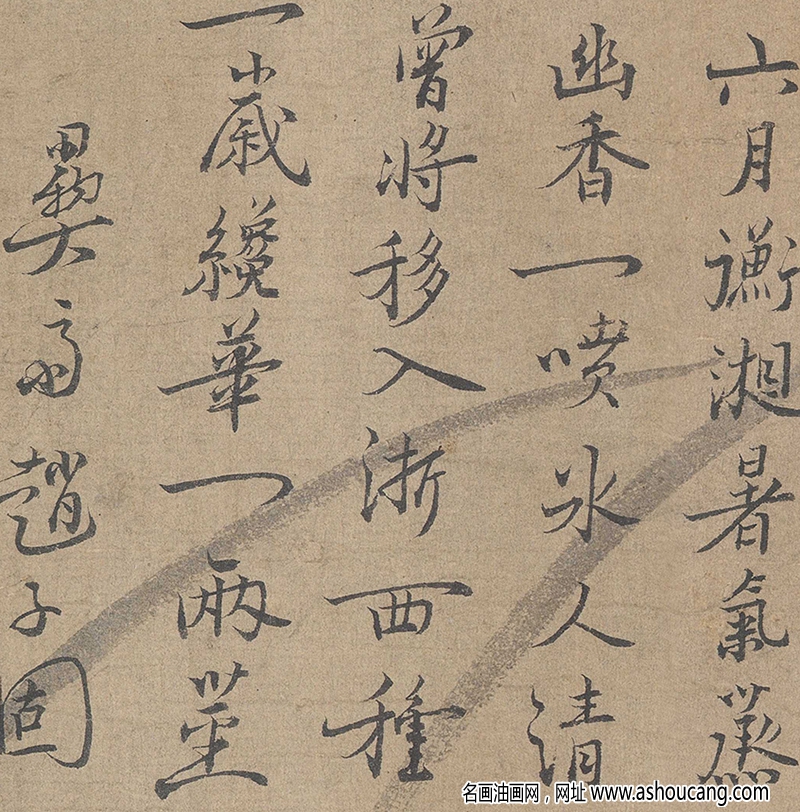 六月衡湘暑氣蒸
幽香一噴冰人清
曾將移入浙西種
一歲纔華一兩莖
彝齋趙子固
名画油画网，网址 www.ashoucang.com